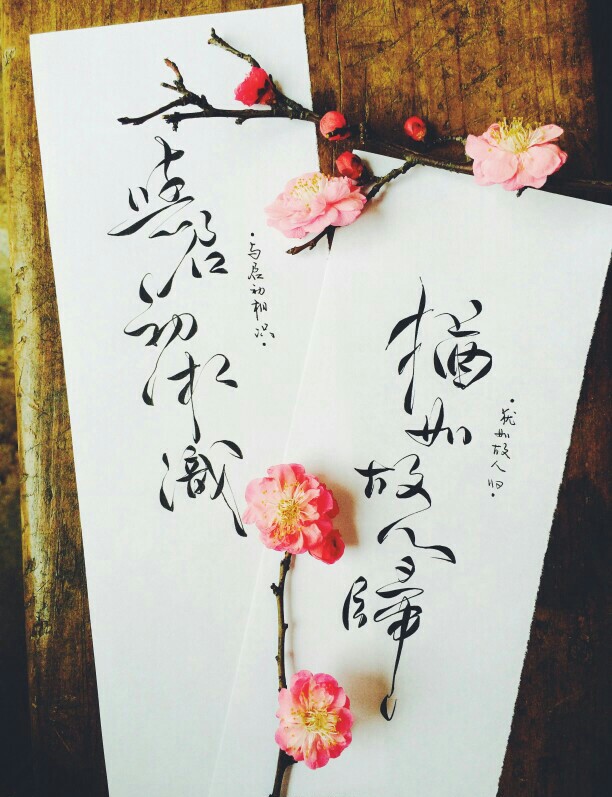 與君初相識
·与君初相识·
猶如故人歸
·犹如故人归·